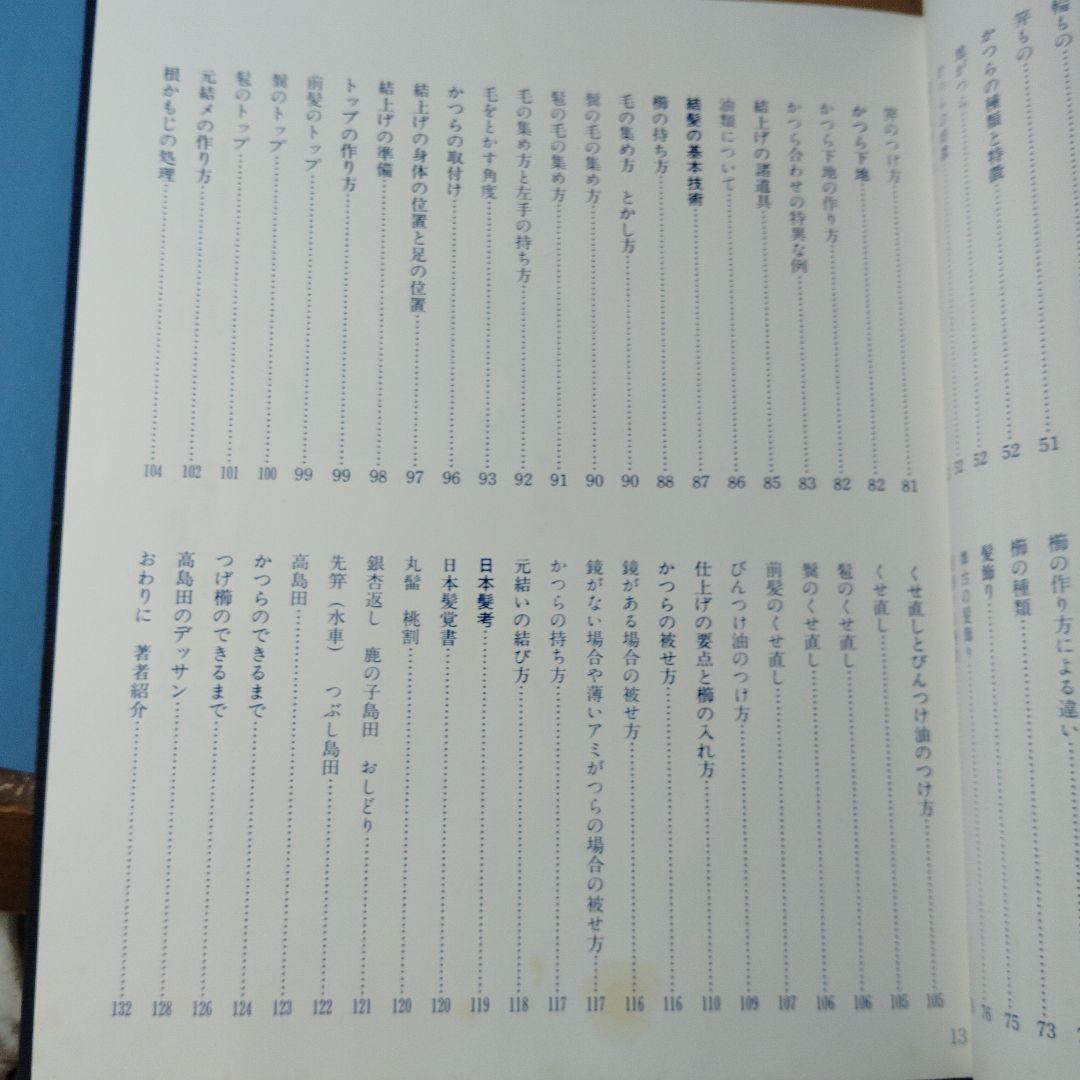 輪もの……51
笄もの……52
かつらの種類と特徴……52
櫛の作り方による違い……73
櫛の種類……75
髪飾り……76
笄のつけ方……81
かつら下地……82
かつら下地の作り方……82
かつら合わせの特異な例……83
結上げの諸道具……85
油類について……86
結髪の基本技術……87
櫛の持ち方……88
毛の集め方　とかし方……90
鬢の毛の集め方……90
髱の毛の集め方……91
毛の集め方と左手の持ち方……92
毛をとかす角度……93
かつらの取付け……96
結上げの身体の位置と足の位置……97
結上げの準備……98
トップの作り方……99
前髪のトップ……99
鬢のトップ……100
髱のトップ……101
元結〆の作り方……102
根かもじの処理……104
くせ直しとびんつけ油のつけ方……105
くせ直し……105
髱のくせ直し……106
鬢のくせ直し……106
前髪のくせ直し……107
びんつけ油のつけ方……109
仕上げの要点と櫛の入れ方……110
かつらの被せ方……116
鏡がある場合の被せ方……116
鏡がない場合や薄いアミがつらの場合の被せ方……117
かつらの持ち方……117
元結いの結び方……118
日本髪考……119
日本髪覚書……120
丸髷　桃割……120
銀杏返し　鹿の子島田　おしどり……121
先笄（水車）　つぶし島田……122
高島田……123
かつらのできるまで……124
つげ櫛のできるまで……126
高島田のデッサン……128
おわりに　著者紹介……132
13